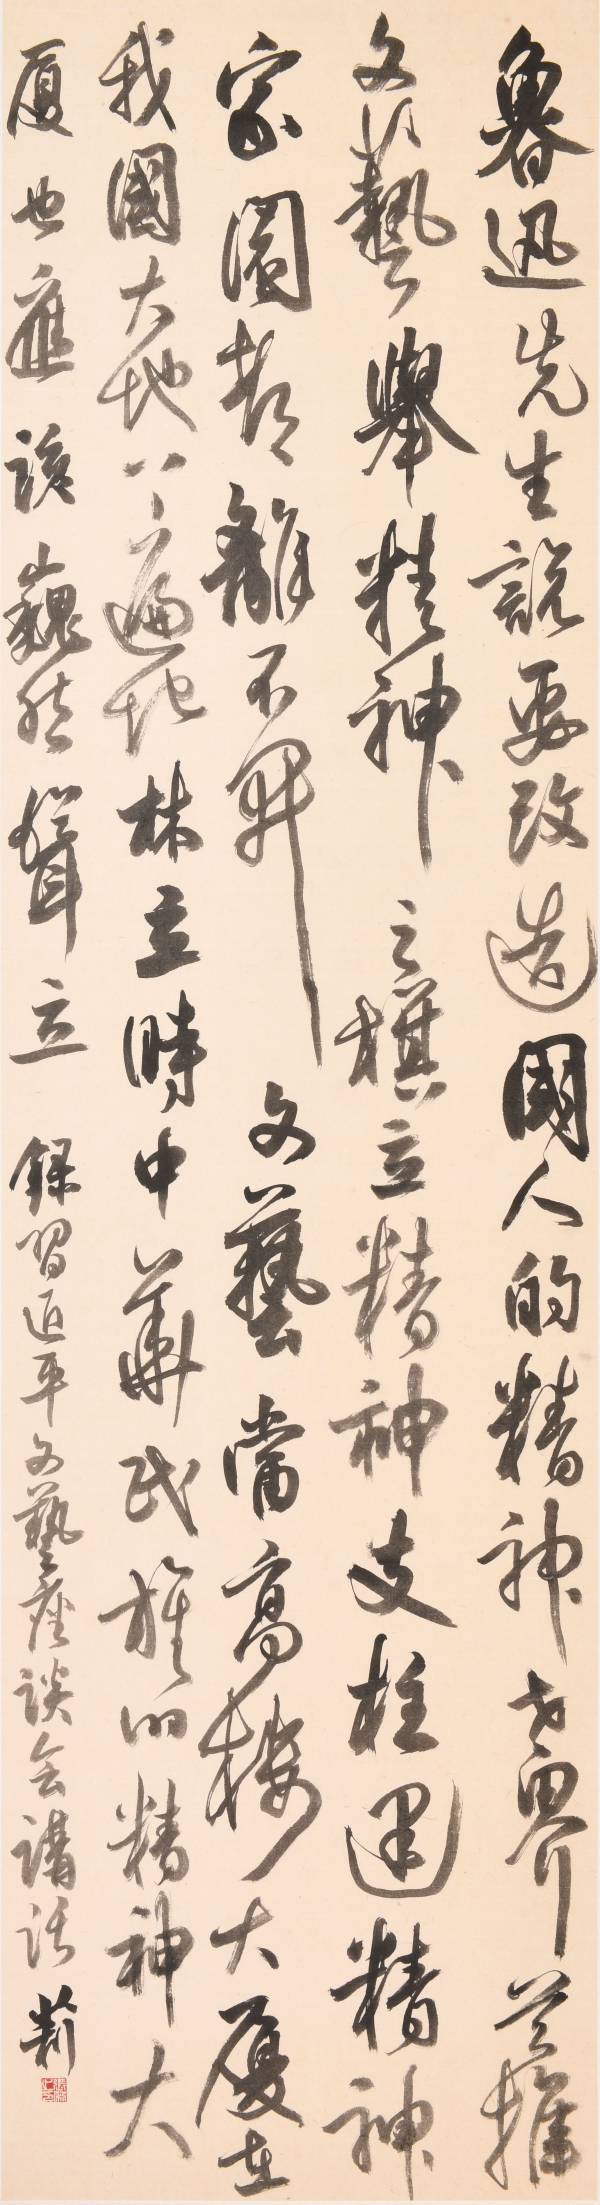 魯迅先生說要改造國人的精神世界首推
文藝舉精神之旗立精神支柱建精神
家園都離不開文藝當高樓大厦在
我國大地上遍地林立時中華民族的精神大
厦也應該巍然聳立 錄習近平文藝座談会講話 莉